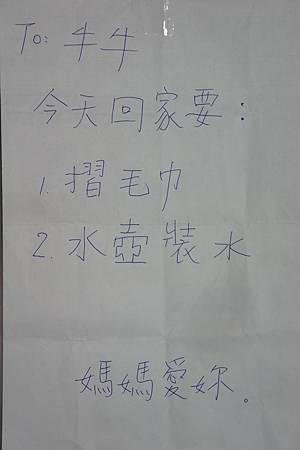 To: 牛牛
今天回家要:
1. 摺毛巾
2. 水壺裝水
媽媽愛妳。